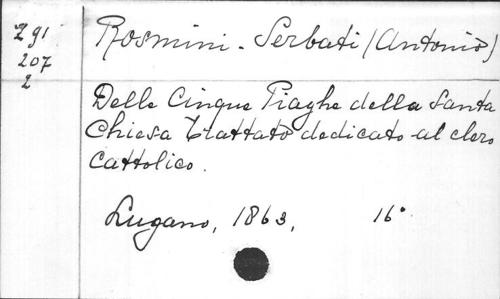 Z 91
207
2
Rosmini-Serbati (Antonio)
Delle Cinque Piaghe della Santa
Chiesa trattato dedicato al clero
cattolico.
Lugano, 1863, 16°